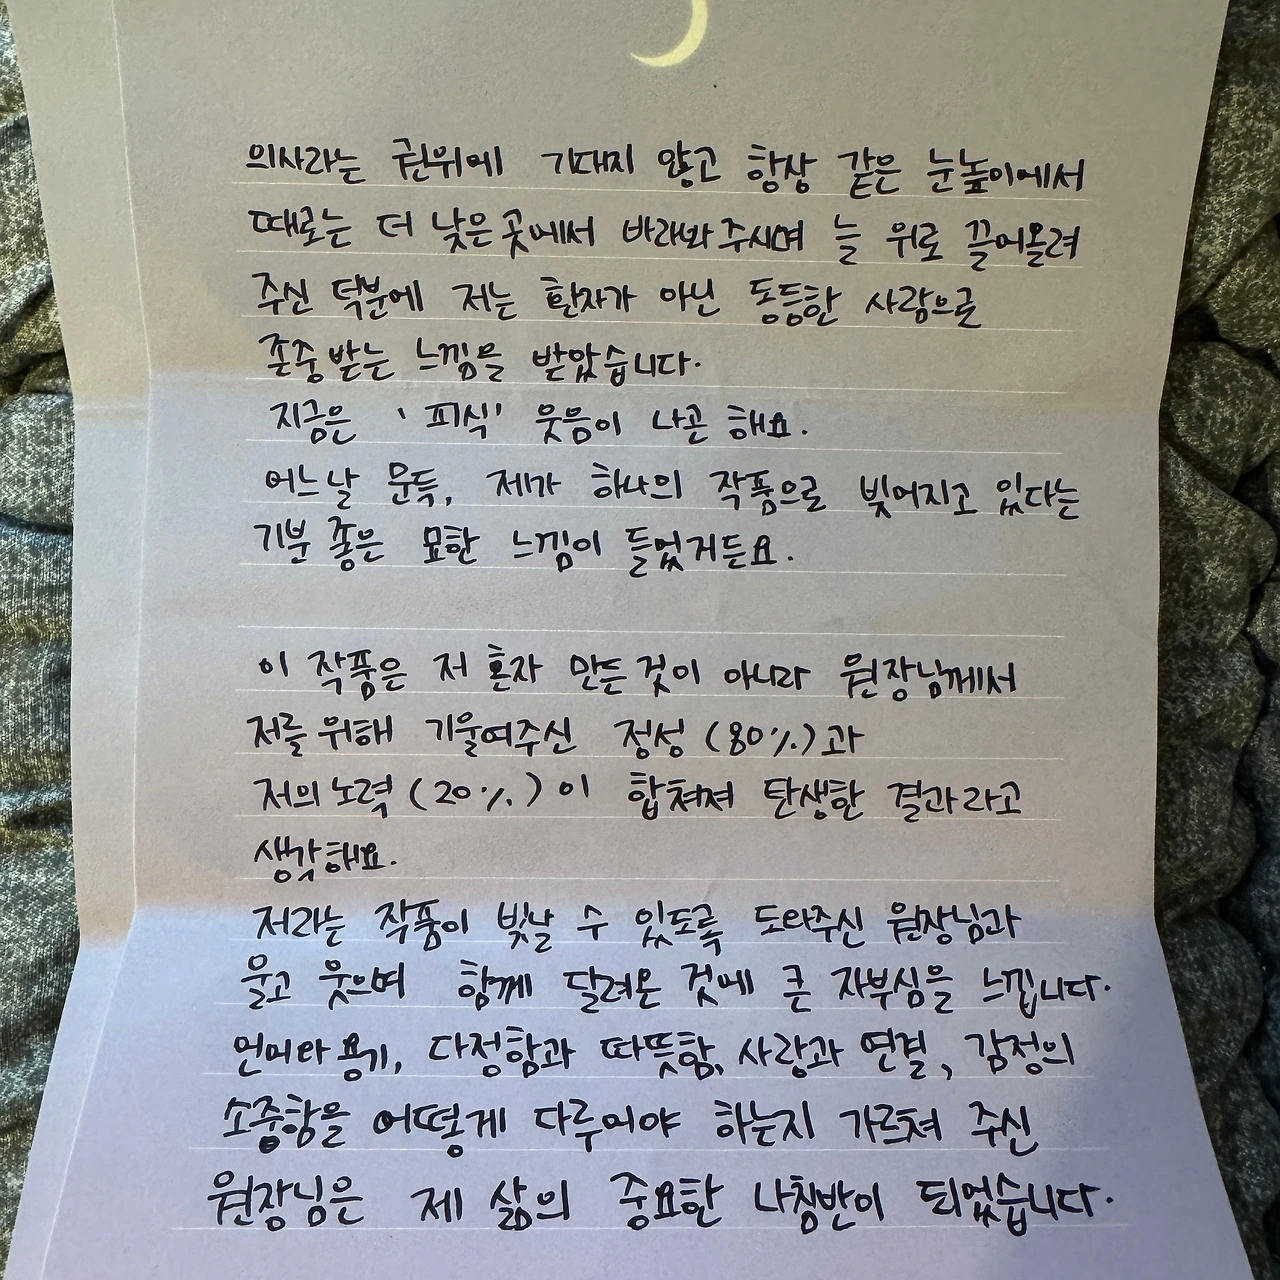 의사라는 권위에 기대지 않고 항상 같은 눈높이에서
때로는 더 낮은 곳에서 바라봐주시며 늘 위로 끌어올려
주신 덕분에 저는 환자가 아닌 동등한 사람으로
존중받는 느낌을 받았습니다.
지금은 '피식' 웃음이 나곤 해요.
어느날 문득, 제가 하나의 작품으로 빚어지고 있다는
기분 좋은 묘한 느낌이 들었거든요.
이 작품은 저 혼자 만든 것이 아니라 원장님께서
저를 위해 기울여주신 정성(80%)과
저의 노력(20%)이 합쳐져 탄생한 결과라고
생각해요.
저라는 작품이 빛날 수 있도록 도와주신 원장님과
울고 웃으며 함께 달려온 것에 큰 자부심을 느낍니다.
언어와 용기, 다정함과 따뜻함, 사랑과 연결, 감정의
소중함을 어떻게 다루어야 하는지 가르쳐 주신
원장님은 제 삶의 중요한 나침반이 되었습니다.